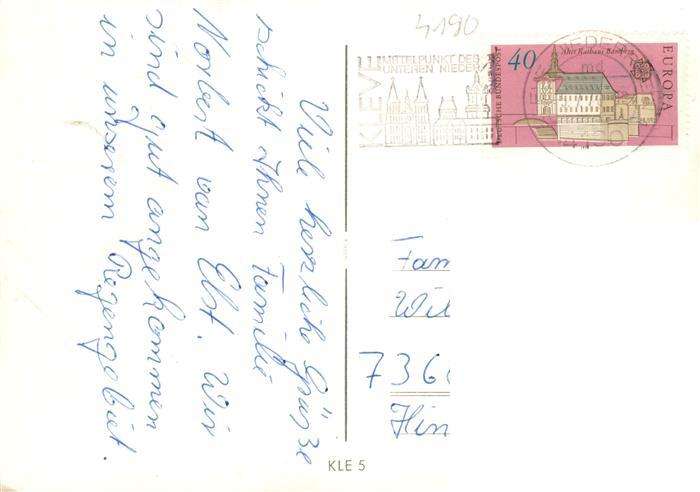 Viele herzliche Grüsse
schickt Ihnen Familie
Norbert van Elst. Wir
sind gut angekommen
in unserem Regengebiet.
4190
KLEVE
MITTELPUNKT DES
UNTEREN NIEDER
40
Altes Rathaus Bamberg
EUROPA
DEUTSCHE BUNDESPOST
Fam
Wil
736
Hin
KLE 5